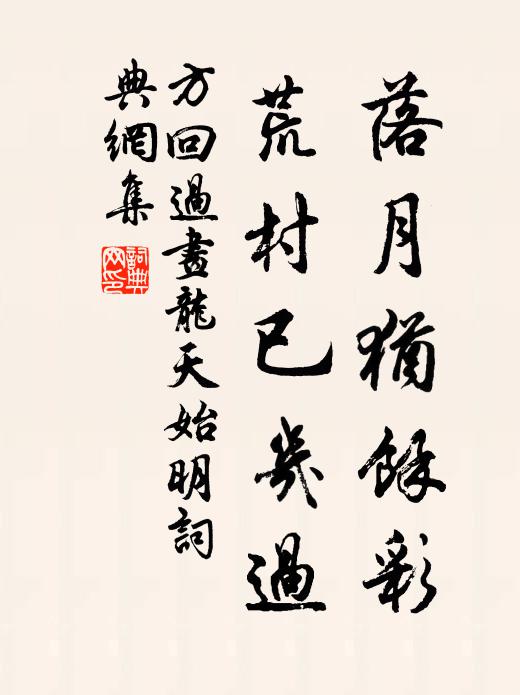 落月猶餘彩
荒村已幾過
方回過畫龍天始明詞
典網集
詞典網印